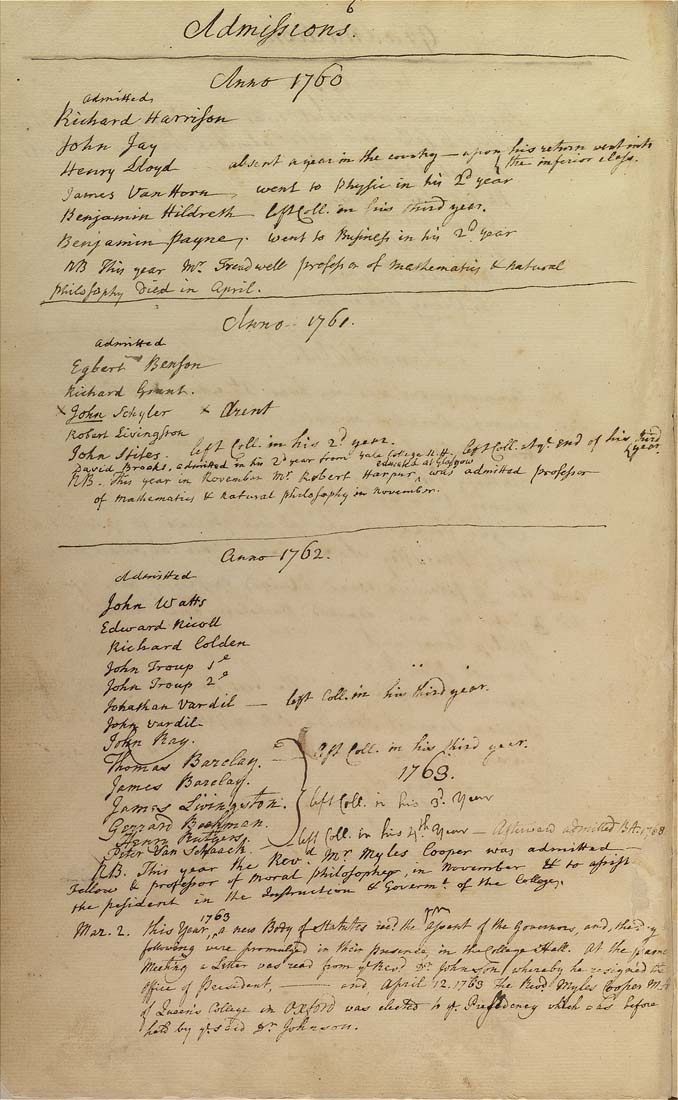 6
Admissions.
Anno 1760
admitted
Richard Harrison
John Jay
Henry Lloyd absent a year in the country — upon his return went into the inferior class.
James VanHorn — went to Physic in his 2d year
Benjamin Hildreth — left Coll. in his third year.
Benjamin Payne, went to Business in his 2d year
NB This year Mr. Treadwell professor of Mathematics & Natural
Philosophy died in April.
Anno 1761.
admitted
Egbert Benson
Richard Grant.
x John Schyler x Arent
Robert Livingston
John Stiles. left Coll. in his 2d year.
David Brooks, admitted in his 2d year from Yale College N.H. left Coll. at ye. end of his third year.
NB. This year in November Mr. Robert Harpur ^ educated at Glasgow was admitted professor
of Mathematics & Natural philosophy in November.
Anno 1762.
Admitted
John Watts
Edward Nicoll
Richard Colden
John Troup 1e
John Troup 2e
Jonathan Vardil — left Coll. in his third year.
John Vardil
John Ray.
Thomas Barclay. — left Coll. in his third year.
James Barclay. 1763.
James Livingston. left Coll. in his 3d. Year
Gerrard Beekman.
Henry Rutgers
Peter Van Schaack — left Coll. in his 4th Year — Afterward admitted BA. 1768
NB. This year the Revd. Mr. Myles Cooper was admitted
Fellow & professor of Moral philosophy, in November & to assist
the president in the Instruction & Governmt. of the College.
Mar. 2. this Year, ^ 1763 a new Body of Statutes recd. the assent of the Governors, and, the
following were promulged in their presence, in the College Hall. At the same
Meeting a Letter was read from ye. Revd. Dr. Johnson, whereby he resigned the
Office of President, — and, April 12. 1763 the Revd. Myles Cooper M.A.
of Queens College in Oxford was elected to ye. Presidency which was before
held by ye. said Dr. Johnson.